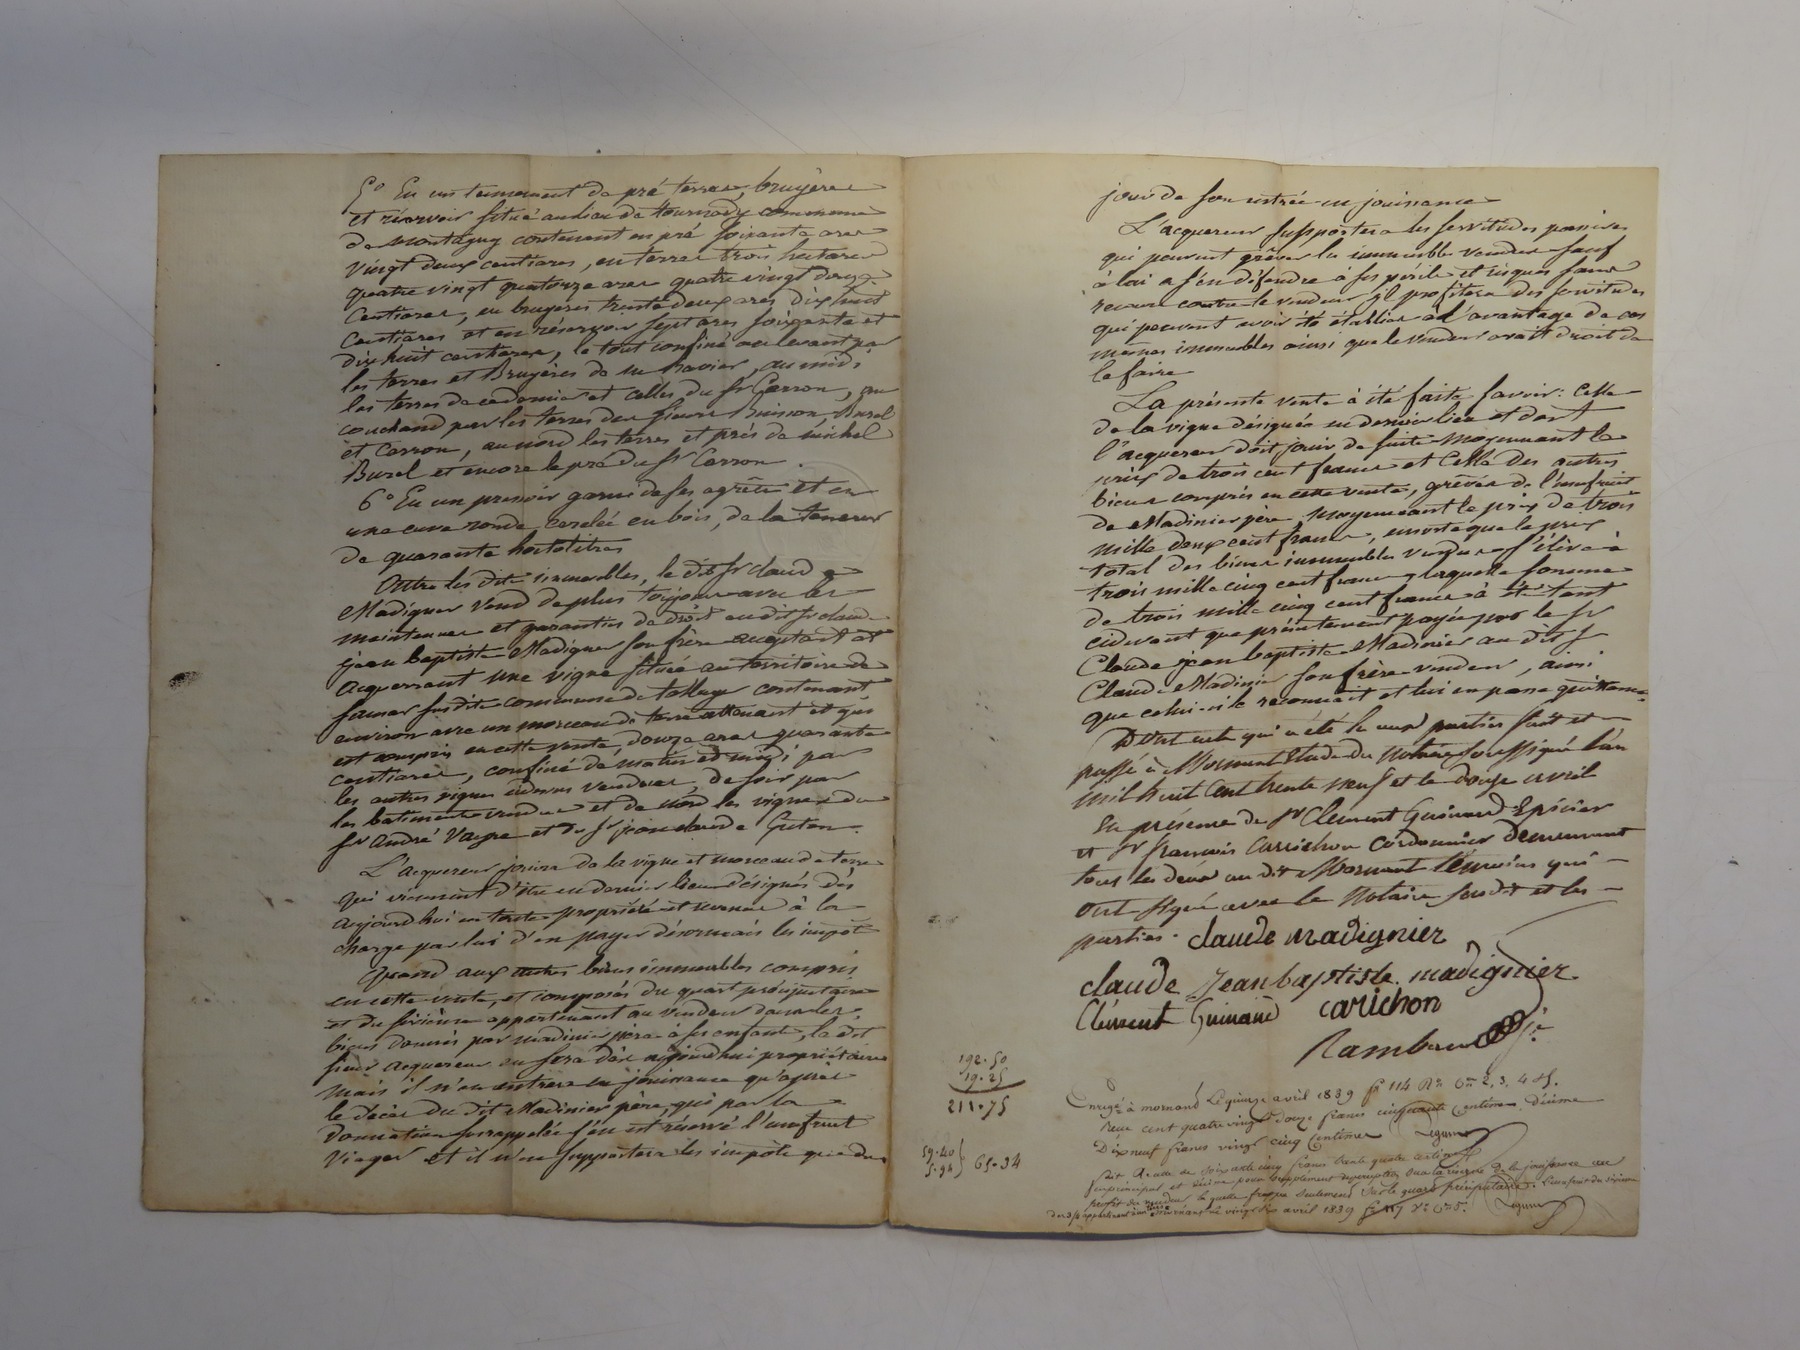 5° En un tennement de pré terres, bruyères
et réservoir situé au lieu de tournady commune
de Montagny contenant en pré soixante ares
vingt deux centiares, en terres trois hectares
quatre vingt quatorze ares quatre vingt douze
centiares, en bruyeres trente deux ares dix huit
centiares et en réservoir sept ares soixante et
dix huit centiares, le tout confiné au levant par
les terres et Bruyères de au midi
les terres de et celles du Sr Carron, au
couchand par les terres des sieurs Buisson Burel
et Carron, au nord les terres et prés de michel
Burel et encore le pré du Sr Carron.
6° En un pressoir garni de ses agrêts et en
une cuve ronde cerclée en bois, de la teneur
de quarante hectolitres
Outre les dits immeubles, le dit Sr claude
Madignier vend de plus toujours avec les
maintenues et garanties de droit au dit Sr claude
jean baptiste Madignier son frère acceptant et
acquerrant une vigne située au territoire de
susdite commune de contenant
environ avec un morceau de terre attenant et qui
est compris en cette vente, douze ares quarante
centiares, confiné de matin et midi par
les autres vignes vendues, de soir par
les batiments vendus et de nord les vignes du
Sr andré et du Sr jean claude Guton.
L'acquereur jouira de la vigne et morceau de terre
qui viennent d'être en dernier lieu désignés dès
aujourd'hui en toute propriété et revenus à la
charge par lui d'en payer désormais les impôts
Quand aux autres biens immeubles compris
en cette vente, et composés du quart préciputaire
et du sixième appartenant au vendeur dans les
biens donnés par madinier père à ses enfants, le dit
sieur acquereur en sera dès aujourdhui propriétaire
mais il n'en entrera en jouissance qu'après
le décès du dit Madinier père, qui par la
donnation susrappelée s'en est réservé l'usufruit
viager et il n'en supportera les impôts que du
jour de son entrée en jouissance
L'acquereur supportera les servitudes passives
qui peuvent grêver les immeubles vendus sauf
à lui a s'en défendre à ses périls et risques sans
recours contre le vendeur, il profitera des servitudes
qui peuvent avoir été établies à l'avantage de ces
mêmes immeubles ainsi que le vendeur avait droit de
le faire
La présente vente à été faite savoir: Celle
de la vigne désignée en dernier lieu et dont
l'acquereur doit jouir de suite moyennant le
prix de trois cent francs et Celle des autres
biens compris en cette vente, grêvés de l'usufruit
de Madinier père moyennant le prix de trois
mille deux cent francs, ensorte que le prix
total des biens immeubles vendus s'élève à
trois mille cinq cent francs laquelle somme
de trois mille cinq cent francs à été tant
cidevant que présentement payée par le Sr
Claude jean baptiste Madinier au dit Sr
Claude Madinier son frère vendeur, ainsi
que celui-ci le reconnait et lui en passe quittance
Dont acte qui a été lu aux parties fait et
passé à Mornant Etude du Notaire soussigné l'an
mil huit cent trente neuf et le douze avril
En présence de Sr Clément Guinand Epicier
et Sr francois Carrichon Cordonnier demeurant
tous les deux au dit Mornant témoins qui
ont signé avec le Notaire susdit et les
parties. claude madignier
claude Jean baptiste madignier
Clément Guinand carichon
Rambaud
192.50
19.25
211.75
59.40
5.94 } 65.34
Enregé à mornand Le quinze avril 1839 fo 114 Ro Cses 2, 3, 4 et 5.
Reçu cent quatre vingt douze francs cinquante centimes, décime
Dix neuf francs vingt cinq Centimes
fait Recette de soixante cinq francs trente quatre centimes
en principal et décime pour supplément sur la réserve de la jouissance au
profit du vendeur laquelle frappe seulement sur le quart préciputaire. L'usufruit du sixième
avril 1839 fo 117 Vo Cse 5.